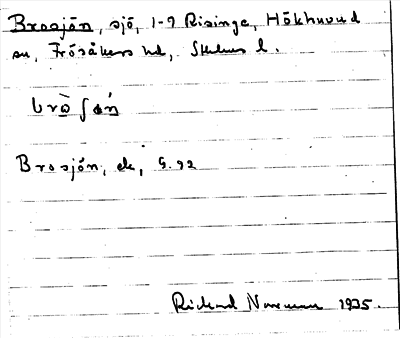 Brosjön, sjö, 1-9 Risinge, Hökhuvud
sn, Frösåkers hd, Sthlms l.
bròʃǝń
Brosjön, ek, G. 92
Rickard Norrman 1935.